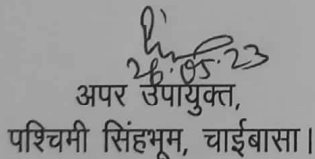 26.05.23
अपर उपायुक्त,
पश्चिमी सिंहभूम, चाईबासा।